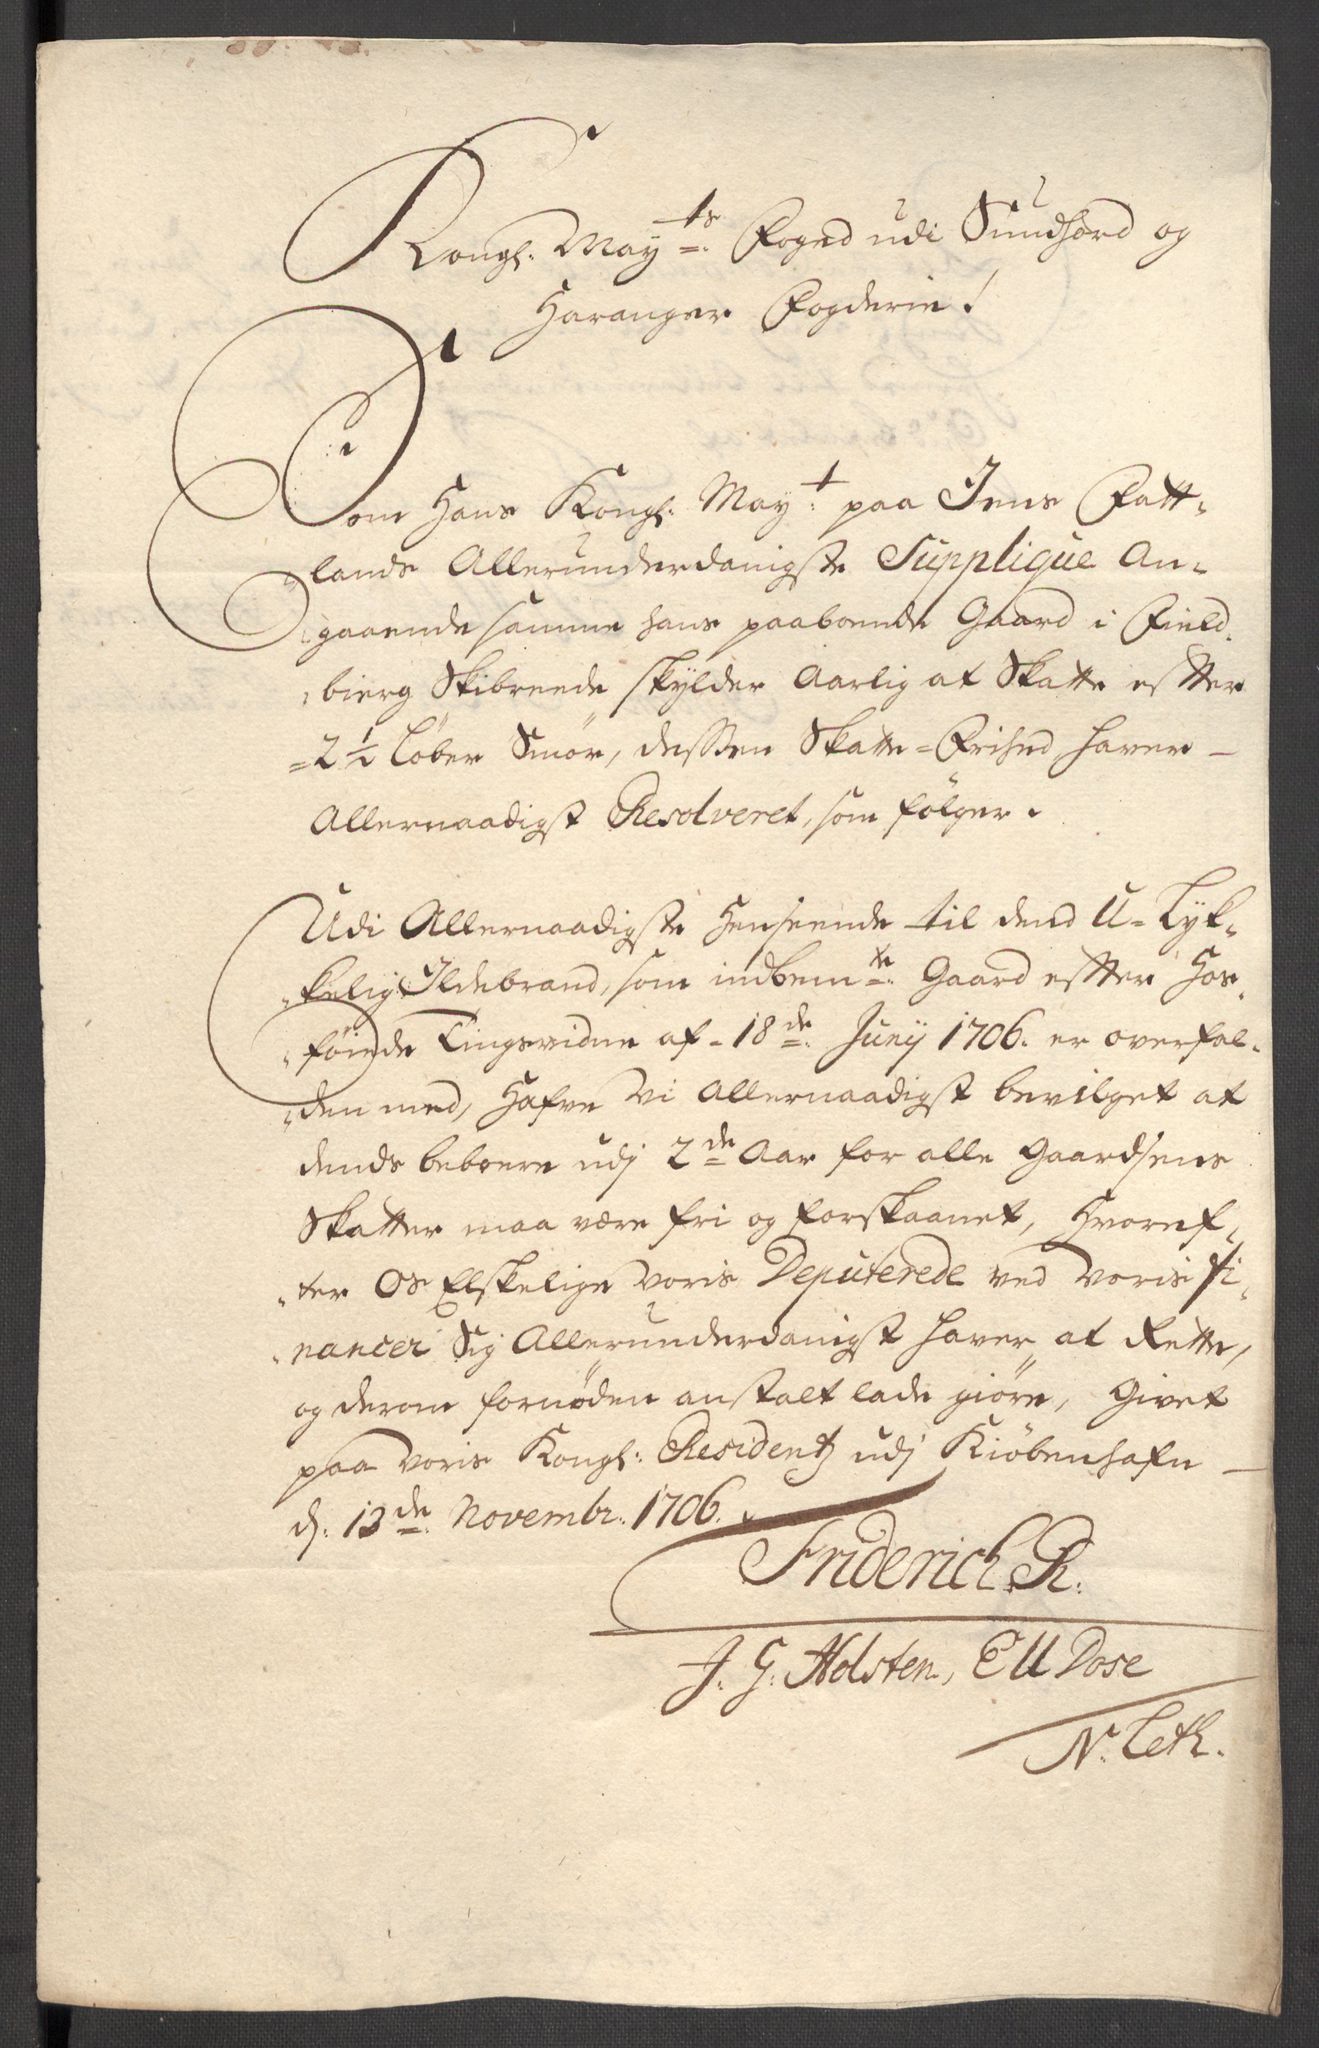 Kongl: May:ts Foged udi Sundhord og
Haranger Fogderie!
Som Hans Kongl: May:t paa Jens Fatt-
lands Allerunderdanigste Supplique An-
gaaende samme hans paaboende Gaard i Field-
bierg Skibreede skylder Aarlig at Skatte efter
2 1/2 Løber Smør, dessen Skatte-Frihed haver
Allernaadigst Resolveret, som følger.
Udi Allernaadigste Henseende til dend U-Lyk-
kelig Ildebrand, som indbem:te Gaard efter Hos-
føiede Tingsvidne af 18de Junij 1706. er overfal-
den med, Hafve Vi Allernaadigst bevilget at
dends beboere udj 2de Aar for alle Gaardsens
Skatter maa være fri og forskaanet, Hvoref-
ter Os Elskelige Voris Deputerede ved Voris Fi-
nancer Sig Allerunderdanigst haver at Rette,
og derom fornøden anstalt lade giøre, Givet
paa Voris Kongl: Residentz udj Kiöbenhafn
d: 13de Novembr: 1706.
Friderich R:
J: G: Holsten, C U Dose
N: Leth.